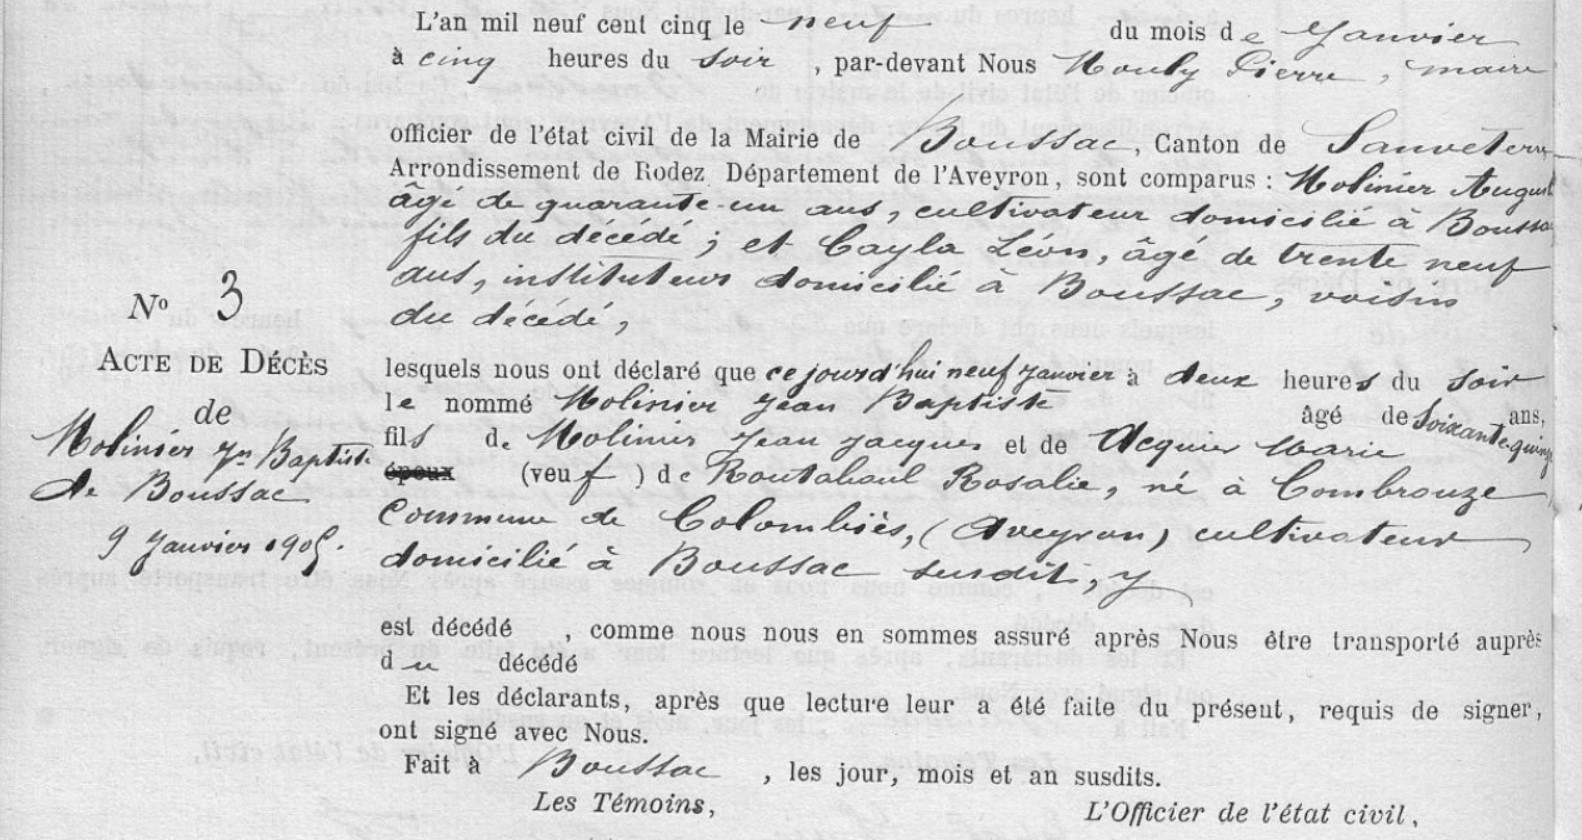 L'an mil neuf cent cinq le neuf du mois de Janvier
à cinq heures du soir, par-devant Nous Mouly Pierre, maire
officier de l'état civil de la Mairie de Boussac, Canton de Sauveterre
Arrondissement de Rodez Département de l'Aveyron, sont comparus : Molinier August
âgé de quarante-un ans, cultivateur domicilié à Boussac
fils du décédé ; et Cayla Léon, âgé de trente neuf
ans, instituteur domicilié à Boussac, voisin
du décédé,
lesquels nous ont déclaré que ce jourd'hui neuf Janvier à deux heures du soir
le nommé Molinier Jean Baptiste âgé de soixante-quinze ans,
fils de Molinier Jean Jacques et de Acquier Marie
époux (veuf) de Routaboul Rosalie, né à Combrouze
Commune de Colombiès, (Aveyron) cultivateur
domicilié à Boussac susdit, y
est décédé, comme nous nous en sommes assuré après Nous être transporté auprès
du décédé
Et les déclarants, après que lecture leur a été faite du présent, requis de signer,
ont signé avec Nous.
Fait à Boussac, les jour, mois et an susdits.
Les Témoins, L'Officier de l'état civil,
N° 3
ACTE DE DÉCÈS
de
Molinier Jn Baptiste
de Boussac
9 Janvier 1905.